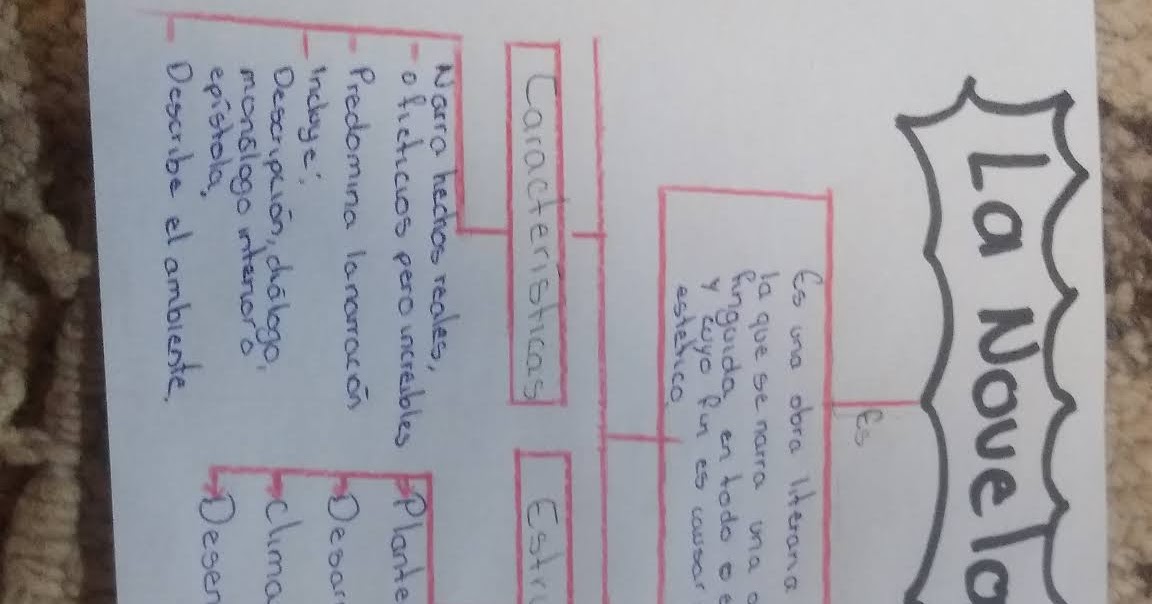 La Novela
Es
Es una obra literaria
la que se narra una
finguida en todo o e
y cuyo fin es causar
estetico
Caracteristicas
Narra hechos reales,
- o ficticios pero increibles
- Predomina la narracón
- Incluye:
Descripción, diálogo,
monólogo interioro
epístola,
- Describe el ambiente,
Estru
Plante
Desar
Clima
Desen